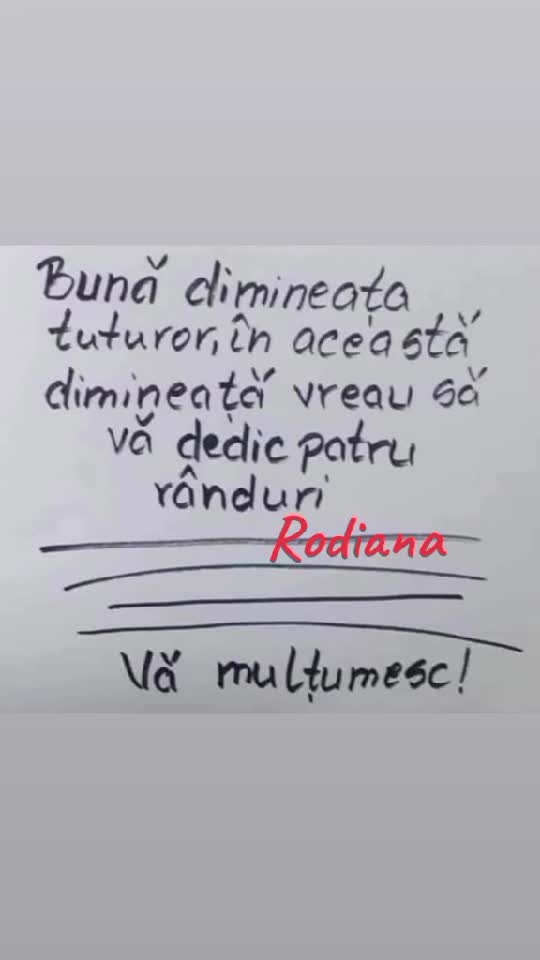 Bună dimineața
tuturor, în această
dimineață vreau să
vă dedic patru
rânduri
Rodiana
Vă mulțumesc!